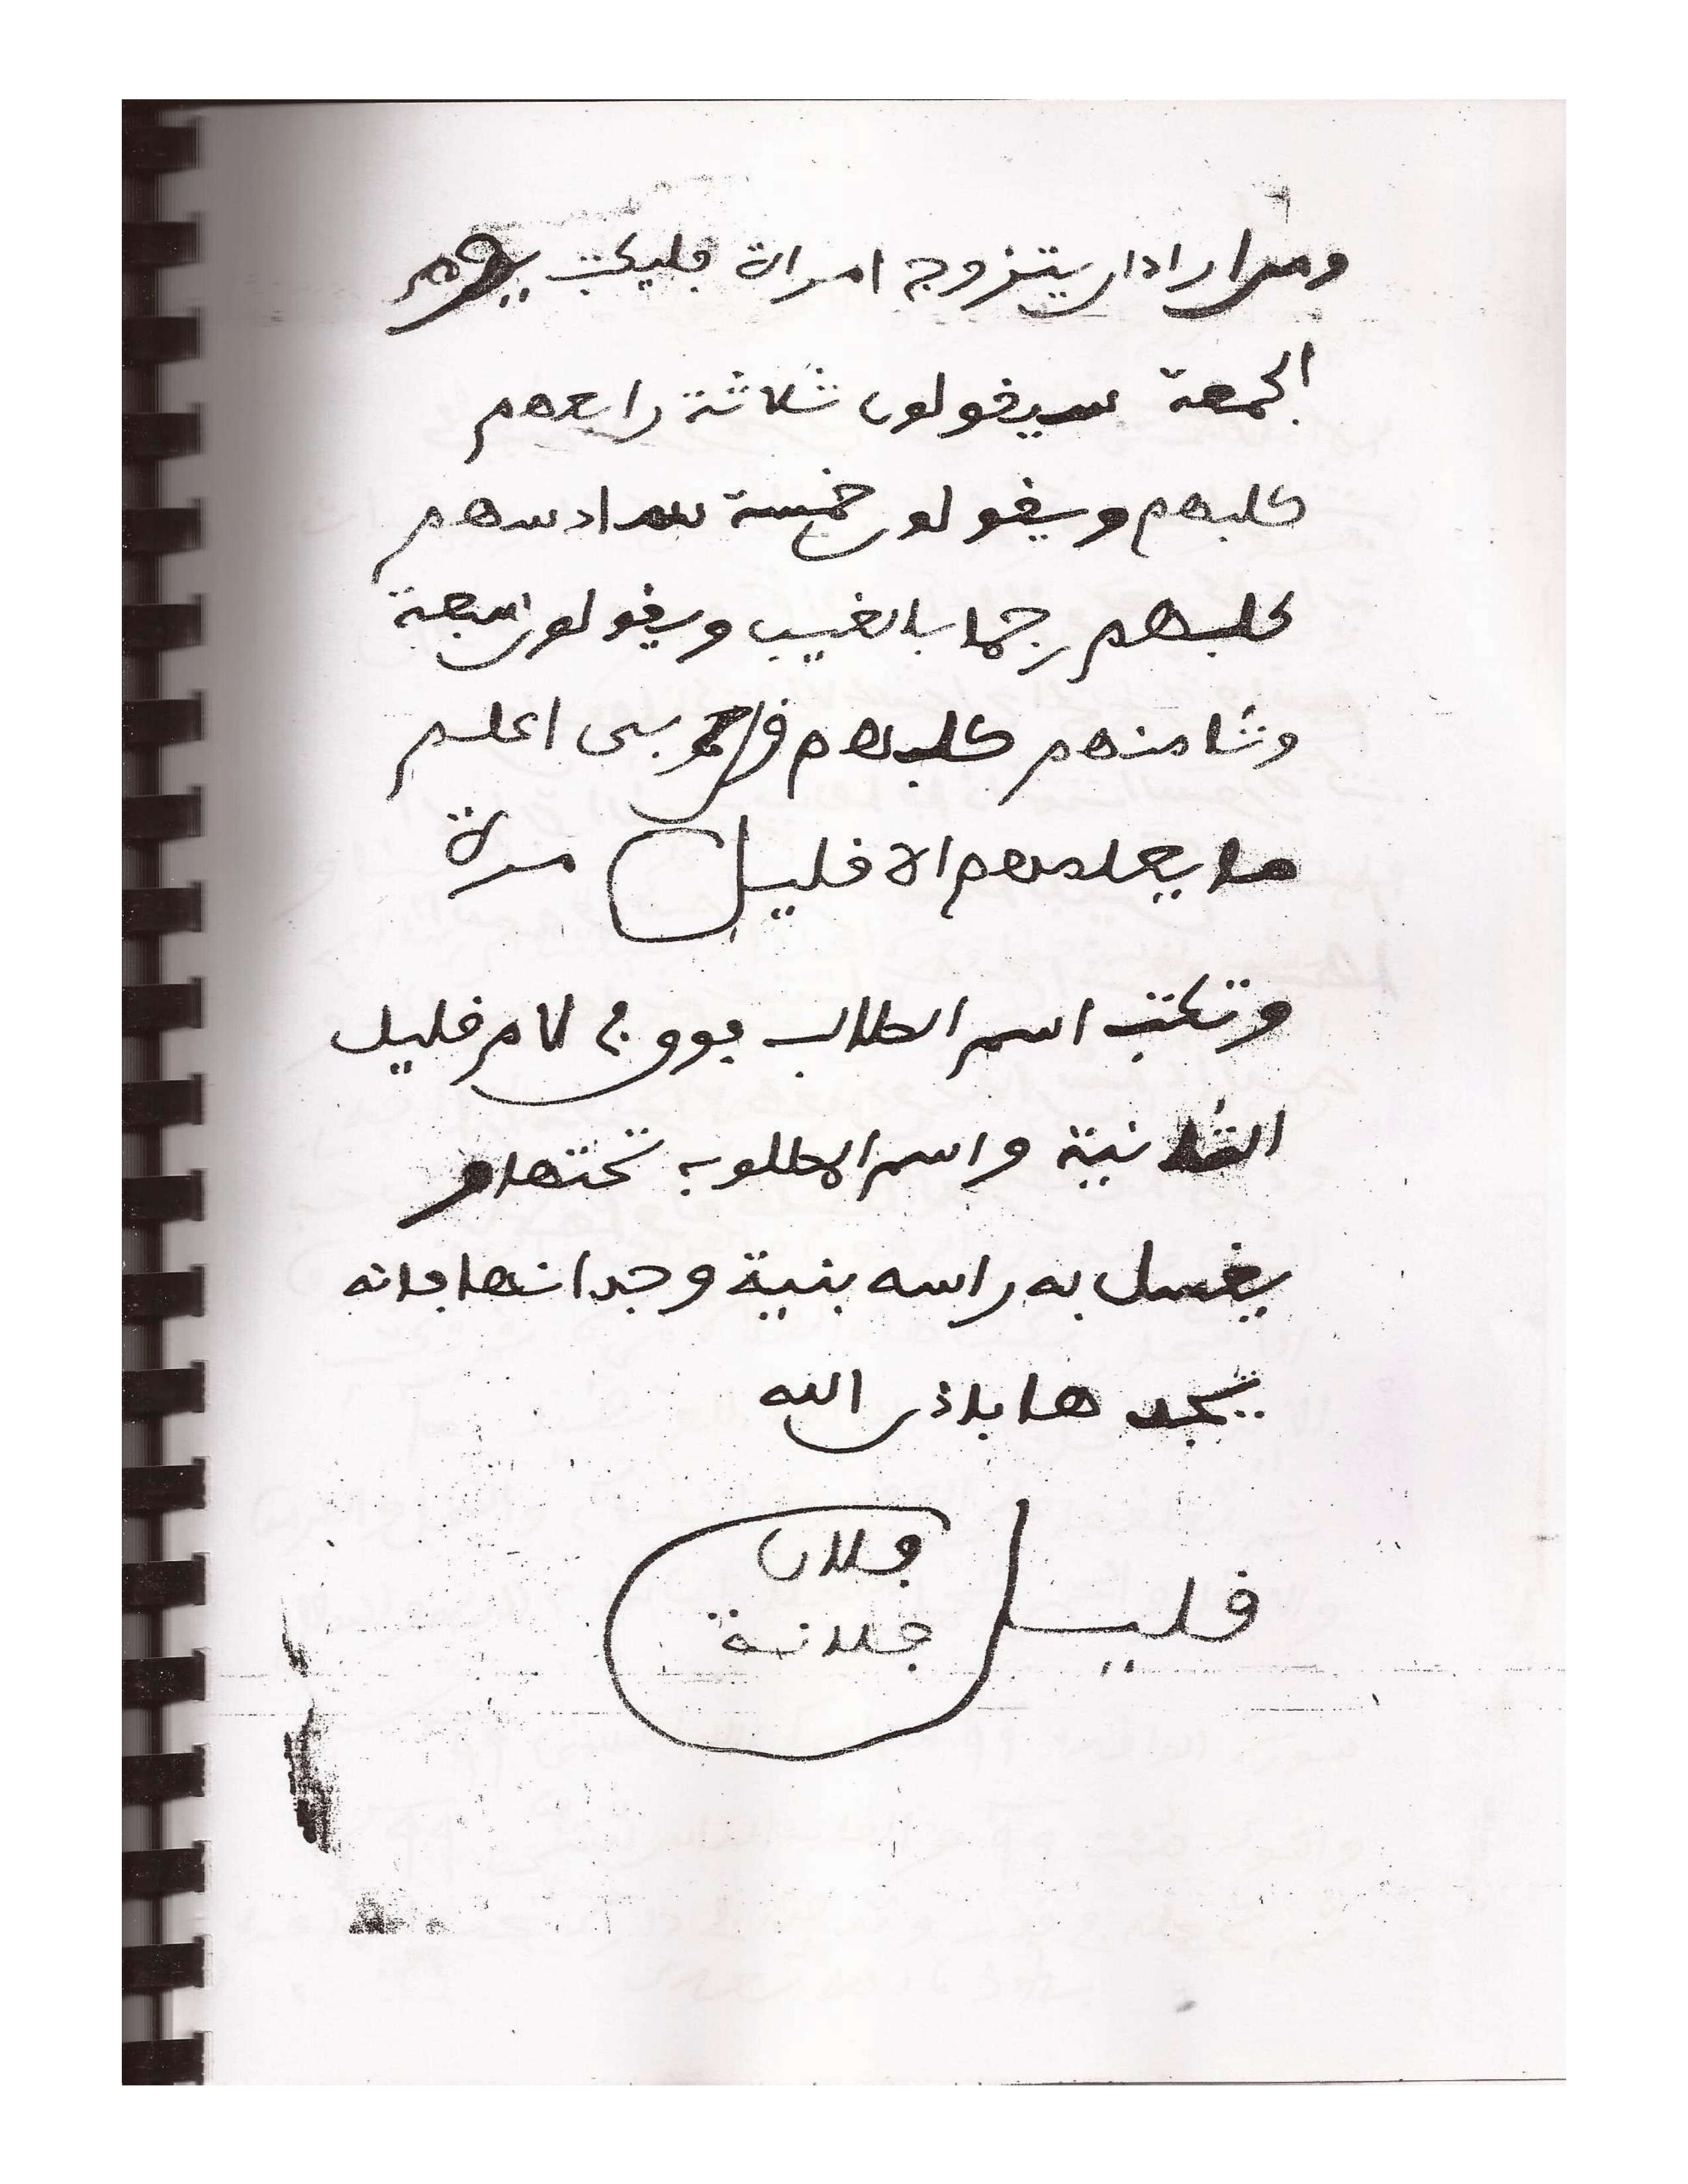 ومن اراد ان يتزوج امراة فليكتب يوم
الجمعة سيقولون ثلاثة رابعهم
كلبهم ويقولون خمسة سادسهم
كلبهم رجما بالغيب ويقولون سبعة
وثامنهم كلبهم قل ربى اعلم
ما يعلمهم الا قليل مرة
وتكتب اسم الطالب فووج لام قليل
الثانية واسم المطلوب تحتها و
يغسل به راسه بنية وجدانها فانه
يجدها باذن الله
قليل
فلان
فلانة